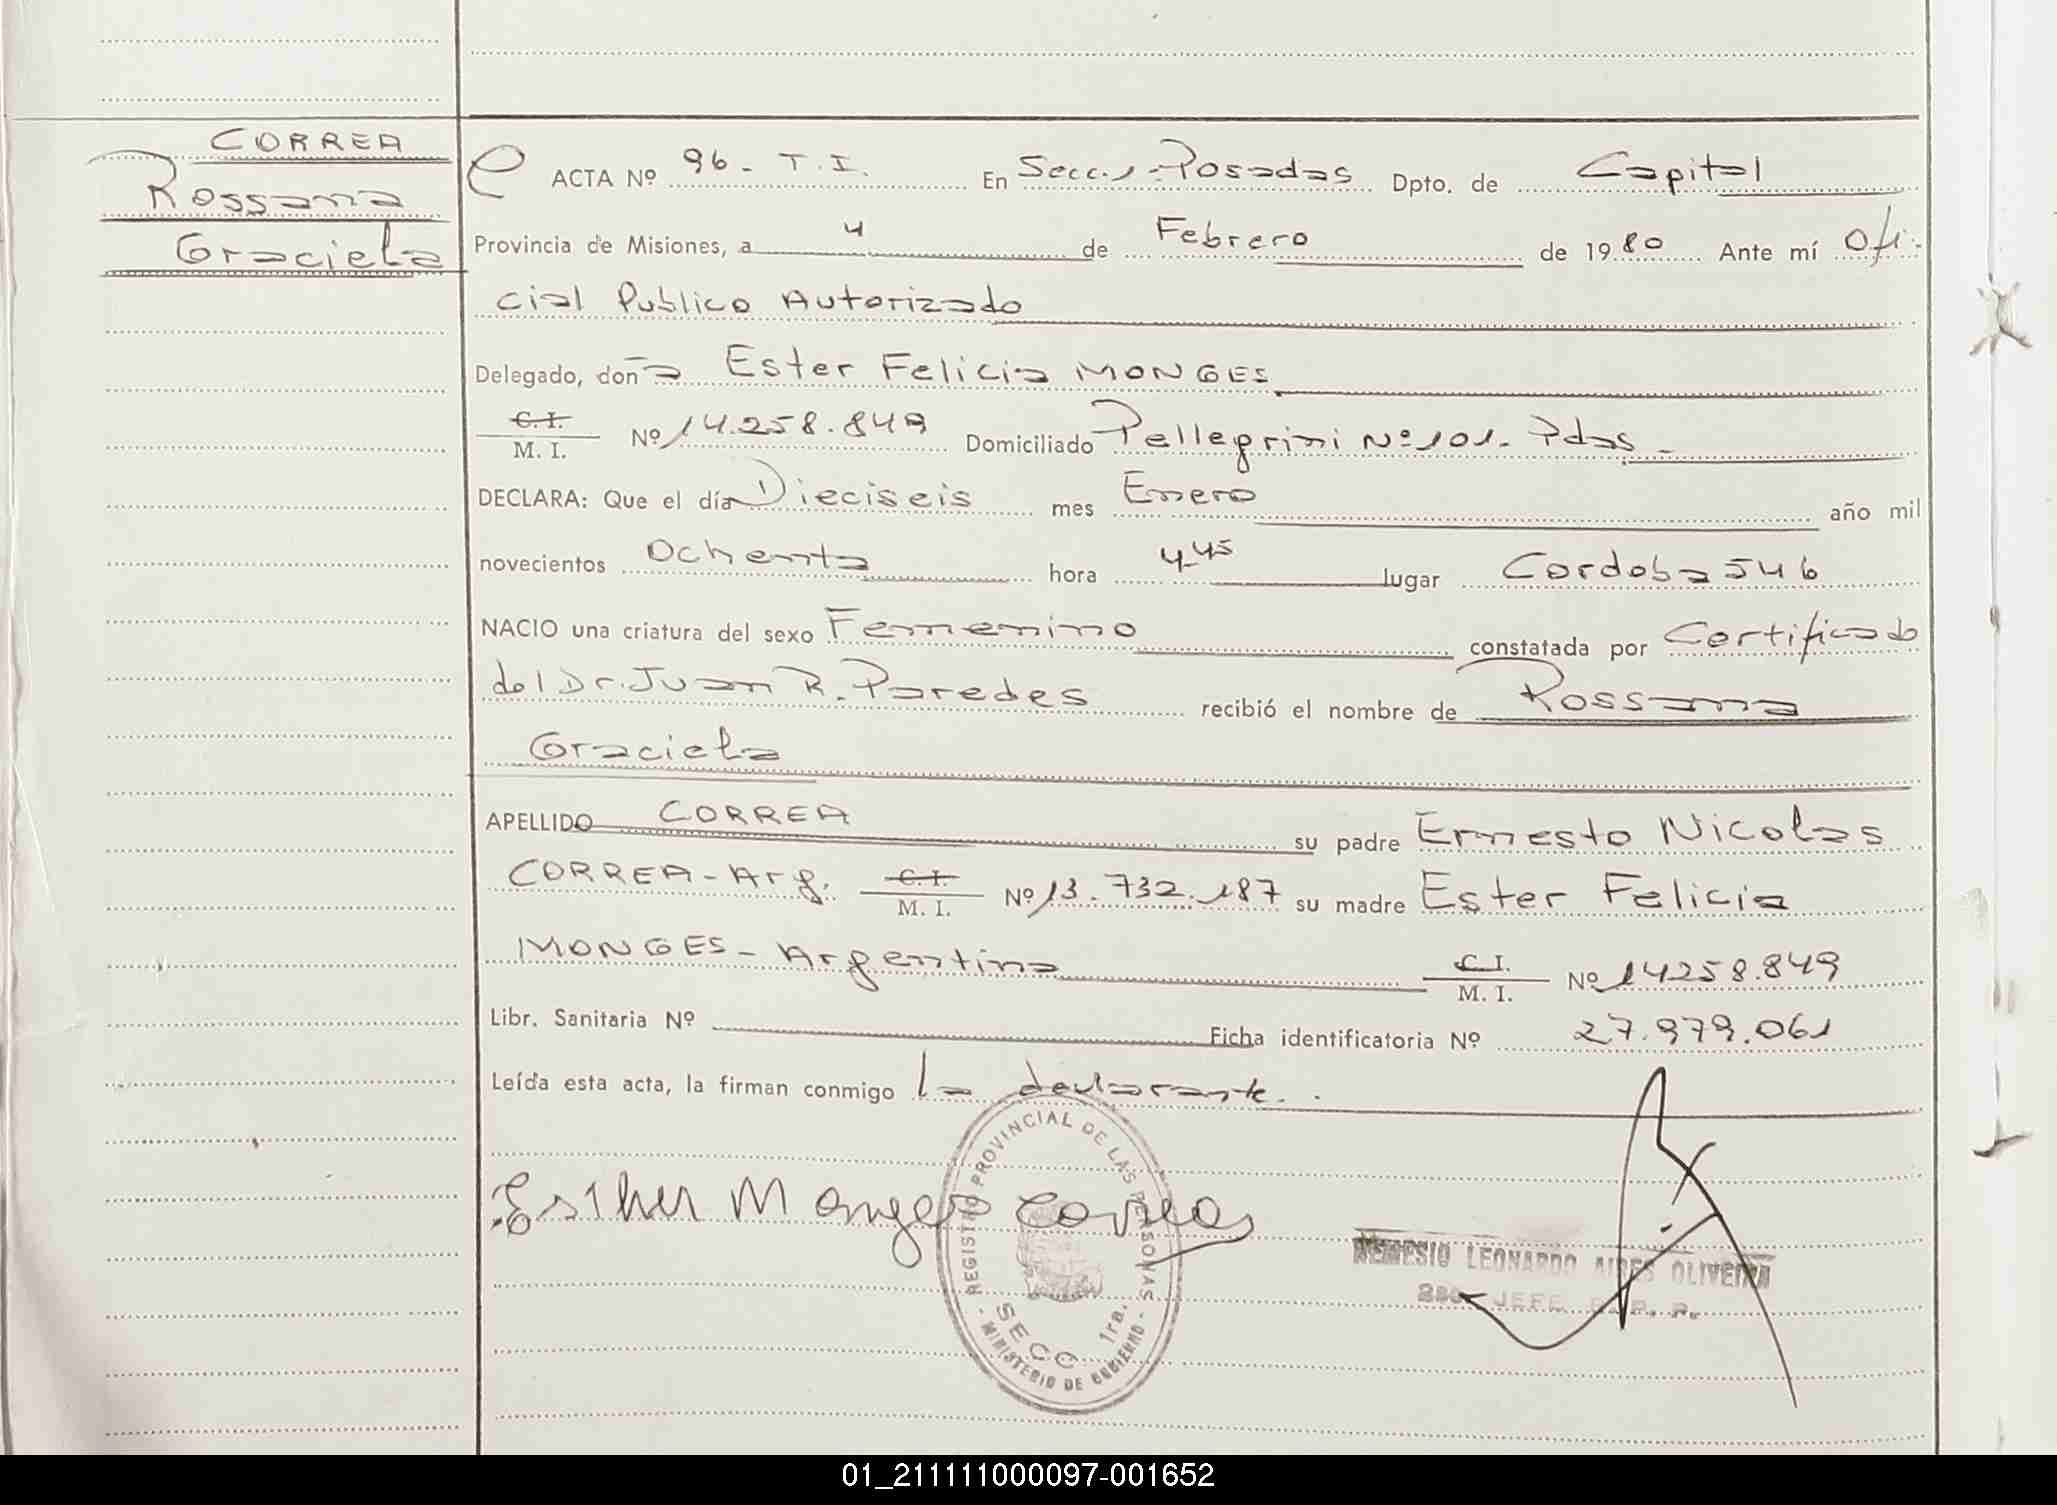 CORREA
Rossana
Graciela
ACTA Nº 96 - T. I. En Secc. 1 - Posadas Dpto. de Capital
Provincia de Misiones, a 4 de Febrero de 1980 Ante mí Ofi-
cial Publico Autorizado
Delegado, doña Ester Felicia MONGES
C. I.
M. I. Nº 14.258.849 Domiciliado Pellegrini Nº 101 - Pdas -
DECLARA: Que el día Dieciseis mes Enero año mil
novecientos Ochenta hora 4-45 lugar Cordoba 546
NACIO una criatura del sexo Femenino constatada por Certificado
del Dr. Juan R. Paredes recibió el nombre de Rossana
Graciela
APELLIDO CORREA su padre Ernesto Nicolas
CORREA - Arg. C. I. M. I. Nº 13.732.187 su madre Ester Felicia
MONGES - Argentina C. I. M. I. Nº 14258.849
Libr. Sanitaria Nº Ficha identificatoria Nº 27.979.061
Leída esta acta, la firman conmigo la declarante.
Esther Monges Correa
REGISTRO PROVINCIAL DE LAS PERSONAS
SECC 1ra.
- MINISTERIO DE GOBIERNO -
NEMESIO LEONARDO AIRES OLIVEIRA
JEFE R. P. P.
01_211111000097-001652